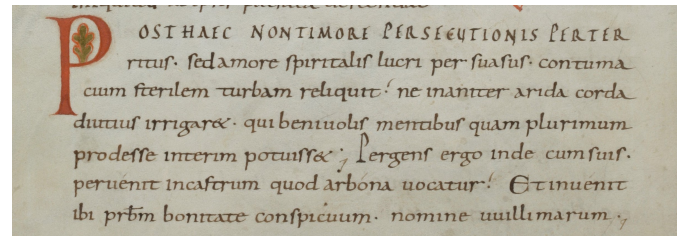 POST HAEC NON TIMORE PERSECUTIONIS PERTER
ritus· sed amore spiritalis lucri persuasus· contuma
cium sterilem turbam reliquit· ne inaniter arida corda
diutius irrigar&· qui benivolis mentibus quam plurimum
prodesse interim potuiss&; Pergens ergo inde cum suis·
pervenit in castrum quod arbona vocatur· Et invenit
ibi prbm bonitate conspicuum· nomine uuillimarum;